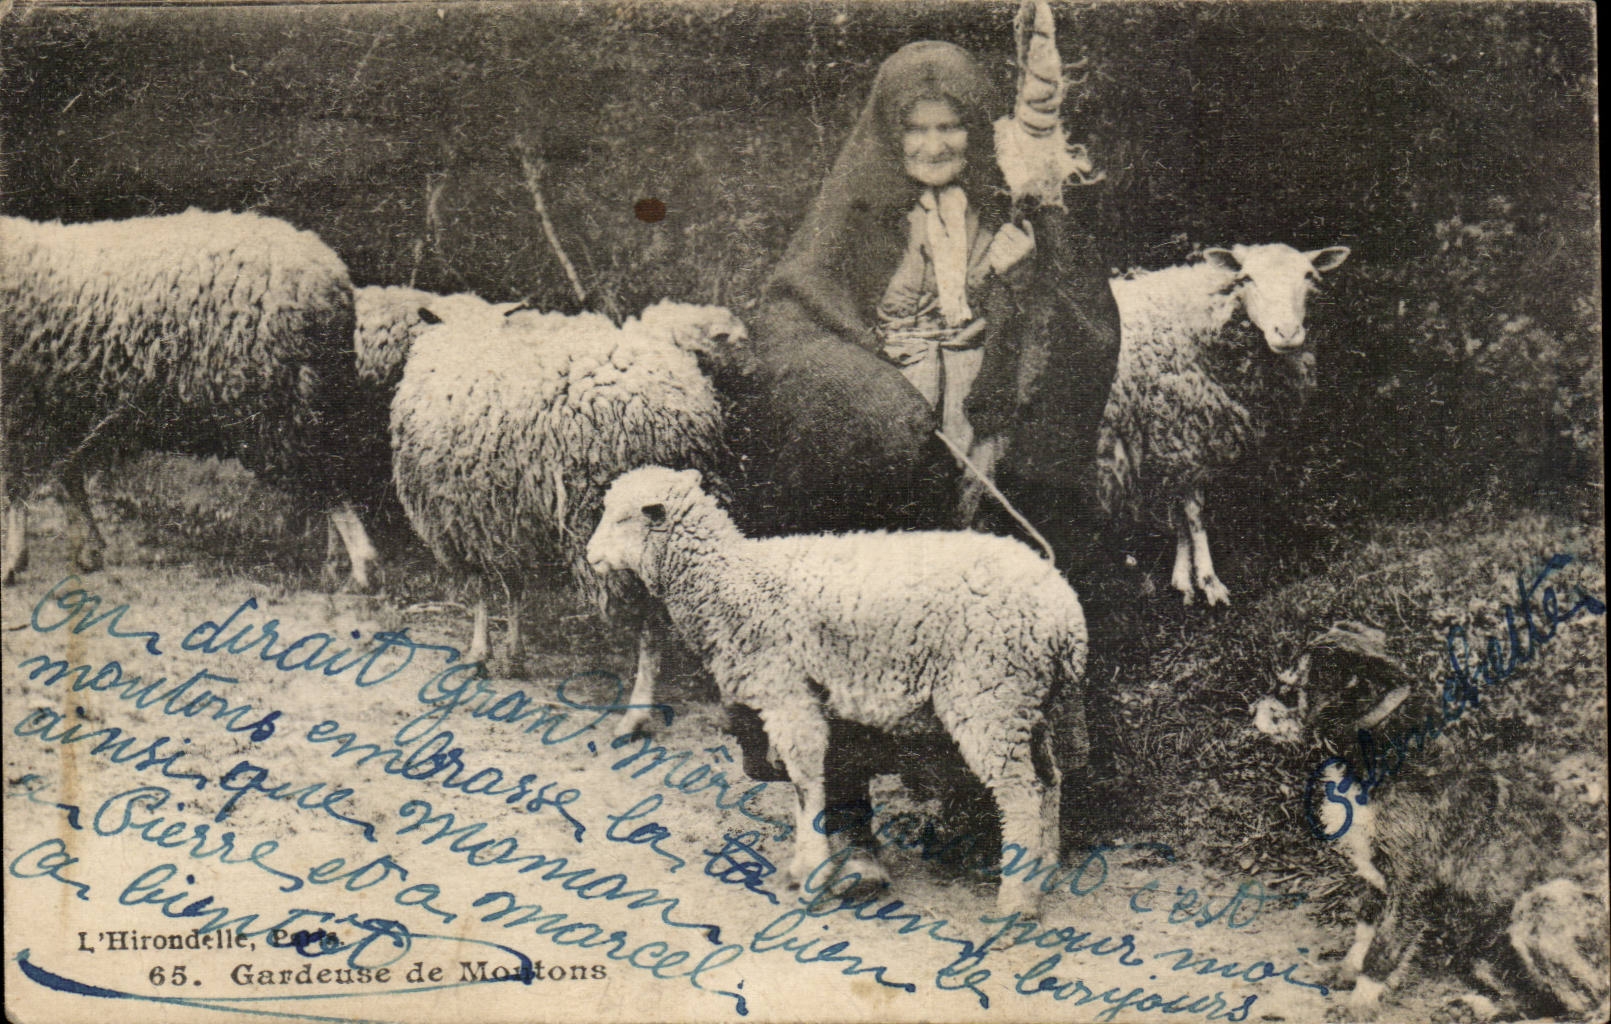 on dirait grand. mère gardant c'est
moutons embrasse la bien pour moi
ainsi que moman bien le bonjours
a Pierre et a marcel
a bientôt
Blanchette
L'Hirondelle, Paris.
65. Gardeuse de Moutons